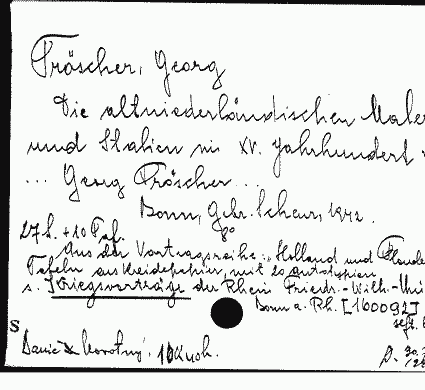 Fröscher, Georg
Die altniederländischen Maler
und Italien im XV. Jahrhundert
... Georg Fröscher ...
Bonn, Gebr. Scheur, 1942.
8°
27 S. + 10 Taf.
Aus der Vortragsreihe: "Holland und Flandern
Tafeln aus Kreidepapier, mit 20 Autotypien
s. Kriegsvorträge der Rhein. Friedr.-Wilh.-Uni
Bonn a. Rh. [160092]
sept.
S